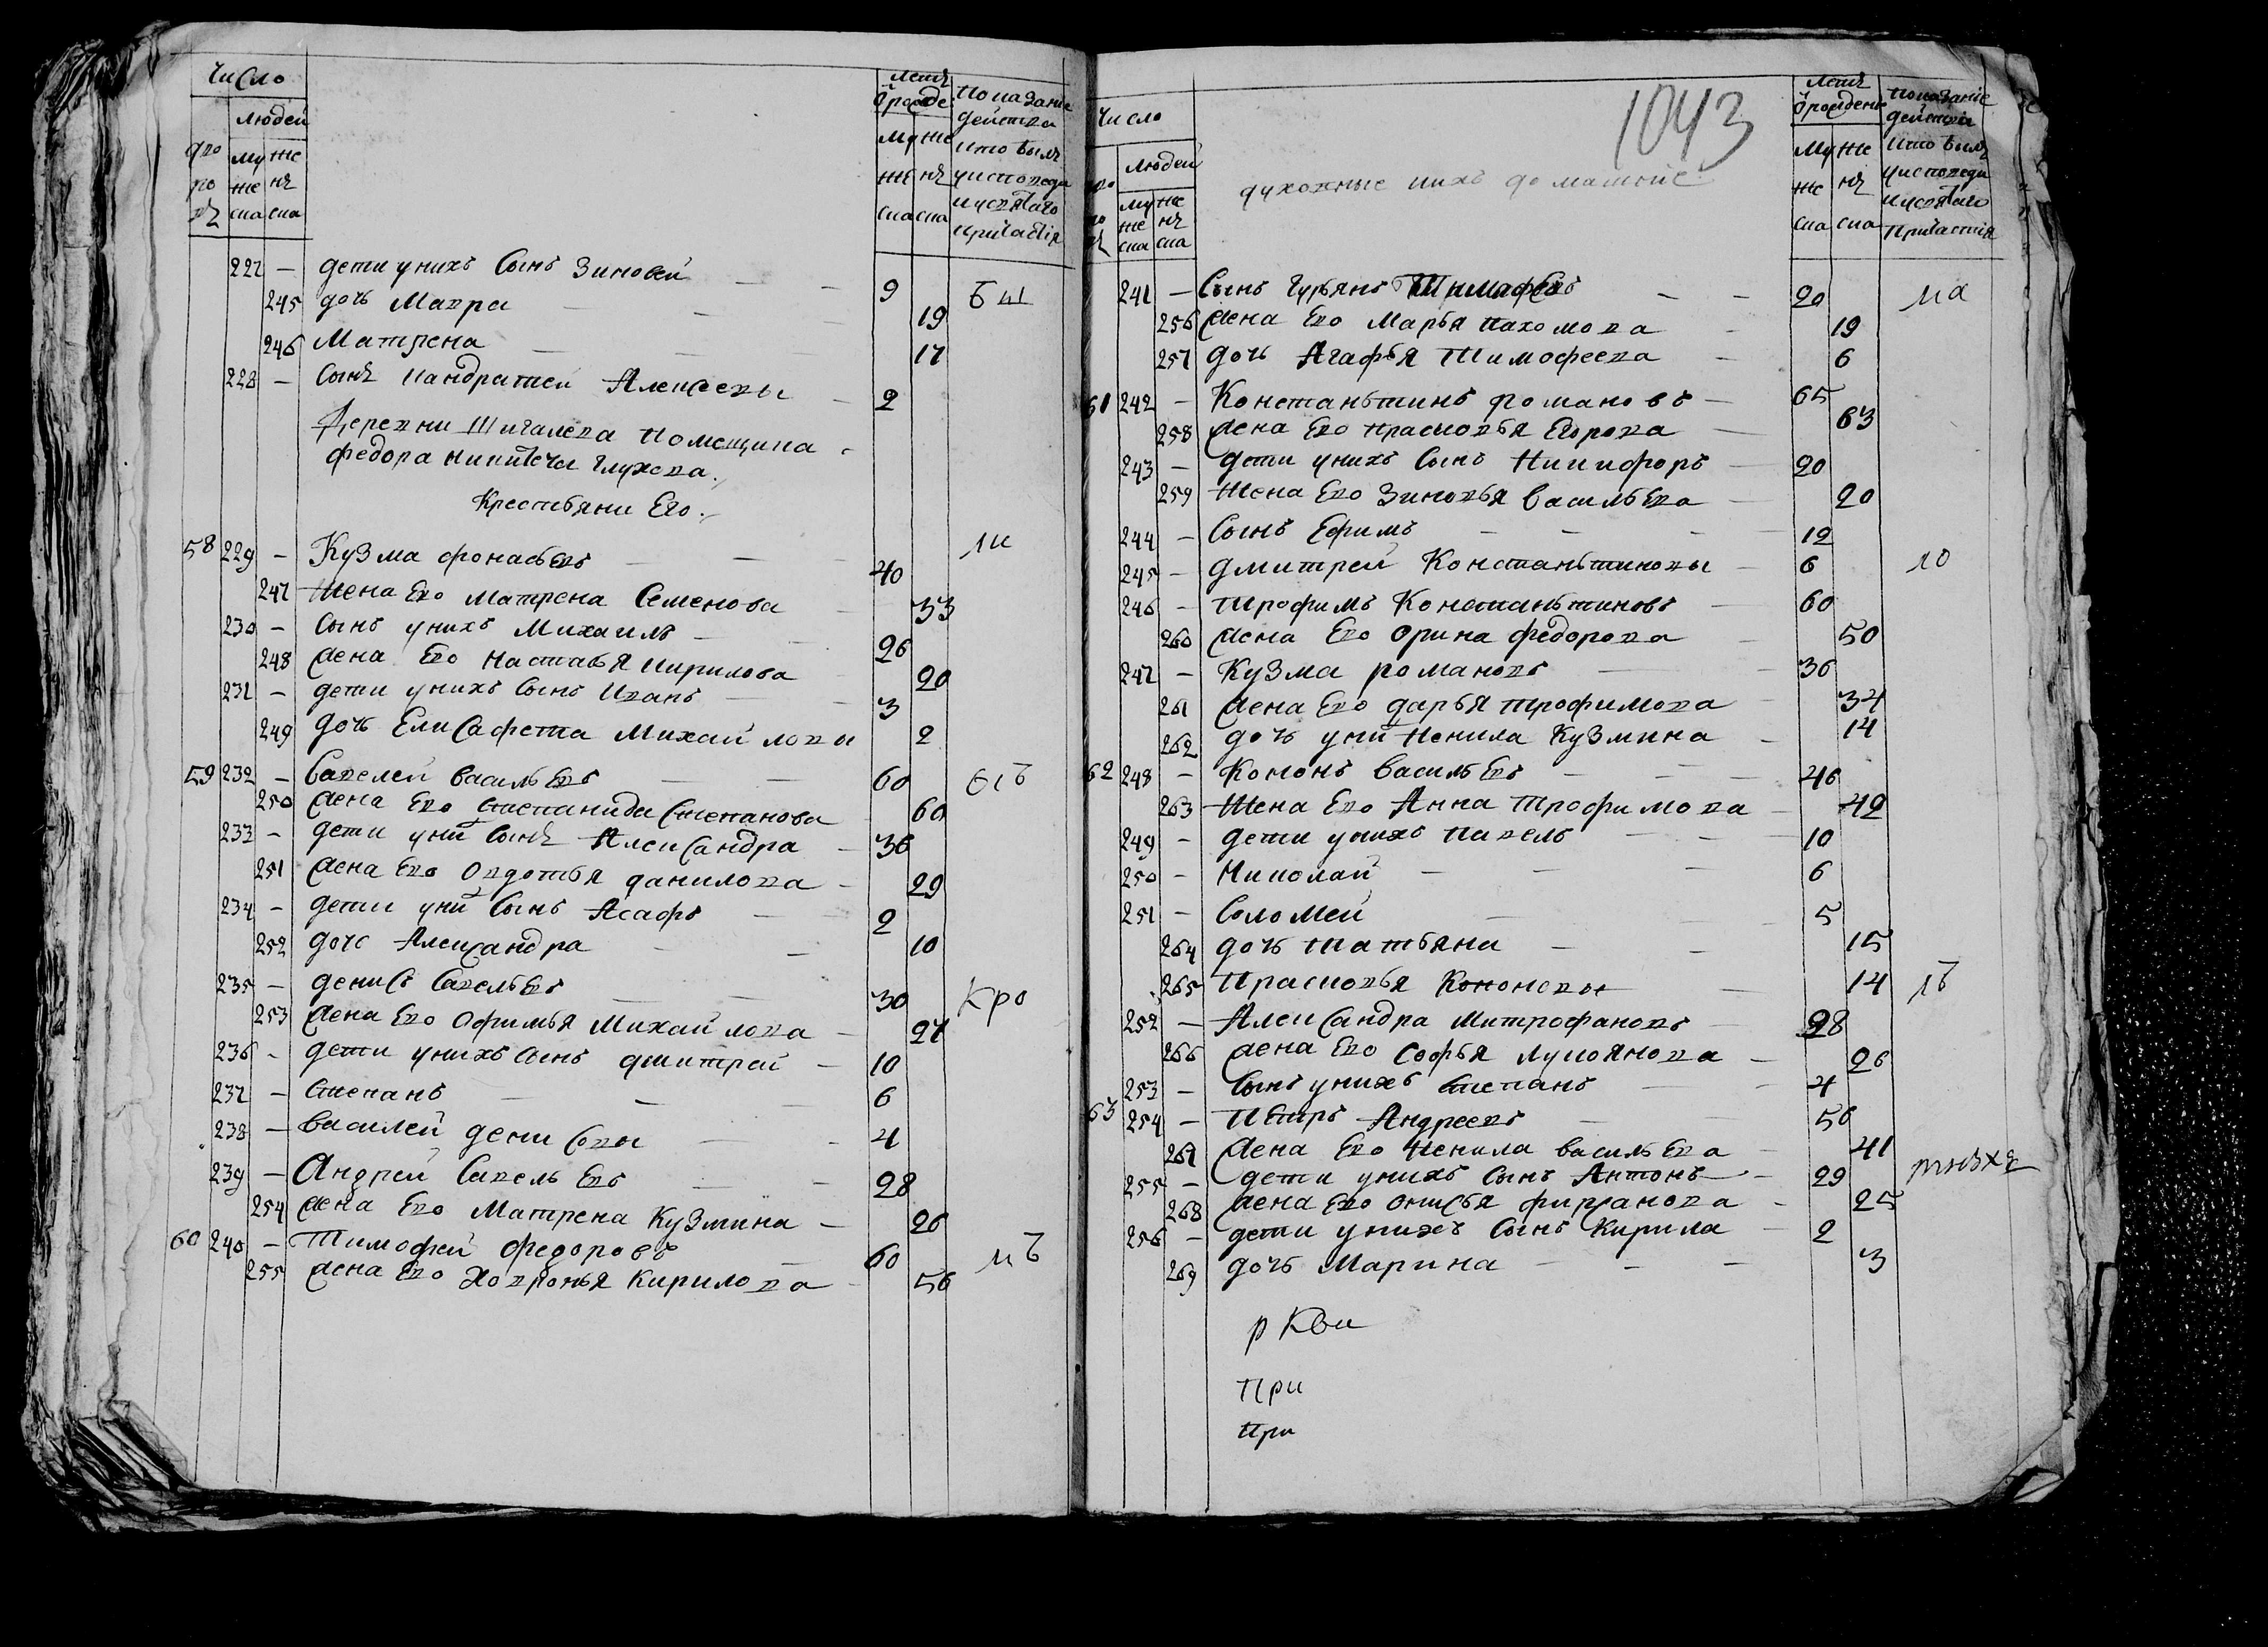 Число
людей
дво
ро
въ
му же
же нъ
ска ска
летъ
ѿ рожде
му же
же нъ
ска ска
показание
действа
кто былъ
у исповеди
и святаго
причастия
227 — дети у нихъ сынъ Зиновей — 9
245 дочь Мавра — 19
246 Матрена — 17
228 — сынъ Кандратей Алексевы — 2
Деревни Шигалева помещика
Федора Никитича Глухова
Крестьяни Ево
58 229 — Кузма Фонасьевъ — 40
247 жена Ево Матрена Семенова — 33
230 — сынъ у нихъ Михаилъ — 26
248 жена Ево Настасья Кирилова — 20
231 — дети у нихъ сынъ Иванъ — 3
249 дочь Елисафета Михайловы 2
59 232 — Савелей Васильевъ — 60
250 жена Ево Степанида Степанова 60
233 — дети у ни сынъ Александра — 36
251 жена Ево Овдотья Данилова — 29
234 — дети у ни сынъ Асафъ — 2
252 дочь Александра — 10
235 — Денисъ Савельевъ — 30
253 жена Ево Офимья Михайлова — 27
236 — дети у нихъ сынъ Дмитрей — 10
237 — Степанъ — 6
238 — Василей Денисовы — 4
239 — Андрей Савельевъ — 28
254 жена Ево Матрена Кузмина — 26
60 240 — Тимофей Федоровъ — 60
255 жена Ево Ховронья Кирилова — 56
1043
Число
людей
му же
же нъ
ска ска
духовные и ихъ домашние
летъ
ѿ рождения
му же
же нъ
ска ска
показание
действа
кто былъ
у исповеди
и святаго
причастия
241 — сынъ Гурьянъ Тимафеевъ — 20
256 жена Ево Марья Пахомова — 19
257 дочь Агафья Тимофеева — 6
61 242 — Констаньтинъ Романовъ — 65
258 жена Ево Прасковья Егорова — 63
243 — дети у нихъ сынъ Никифоръ — 20
259 жена Ево Зиновья Васильева — 20
244 — сынъ Ефимъ — 12
245 — Дмитрей Констаньтиновы — 6
246 — Трофимъ Констаньтиновъ — 60
260 жена Ево Орина Федорова — 50
247 — Кузма Романовъ — 36
261 жена Ево Дарья Трофимова — 34
262 дочь у ни Ненила Кузмина — 14
62 248 — Кононъ Васильевъ — 46
263 жена Ево Анна Трофимова — 42
249 — дети у нихъ Павелъ — 10
250 — Николай — 6
251 — Соломей — 5
264 дочь Татьяна — 15
265 Прасковья Кононевы — 14
252 — Александра Митрофановъ — 28
266 жена Ево Софья Лукоянова — 26
253 — сынъ у нихъ Степанъ — 4
63 254 — Петръ Андреевъ — 56
267 жена Ево Ненила Васильева — 41
255 — дети у нихъ сынъ Антонъ — 29
268 жена Ево Онисья Фирсанова — 25
256 — дети у нихъ сынъ Кирила — 2
269 дочь Марина — 3
При
При